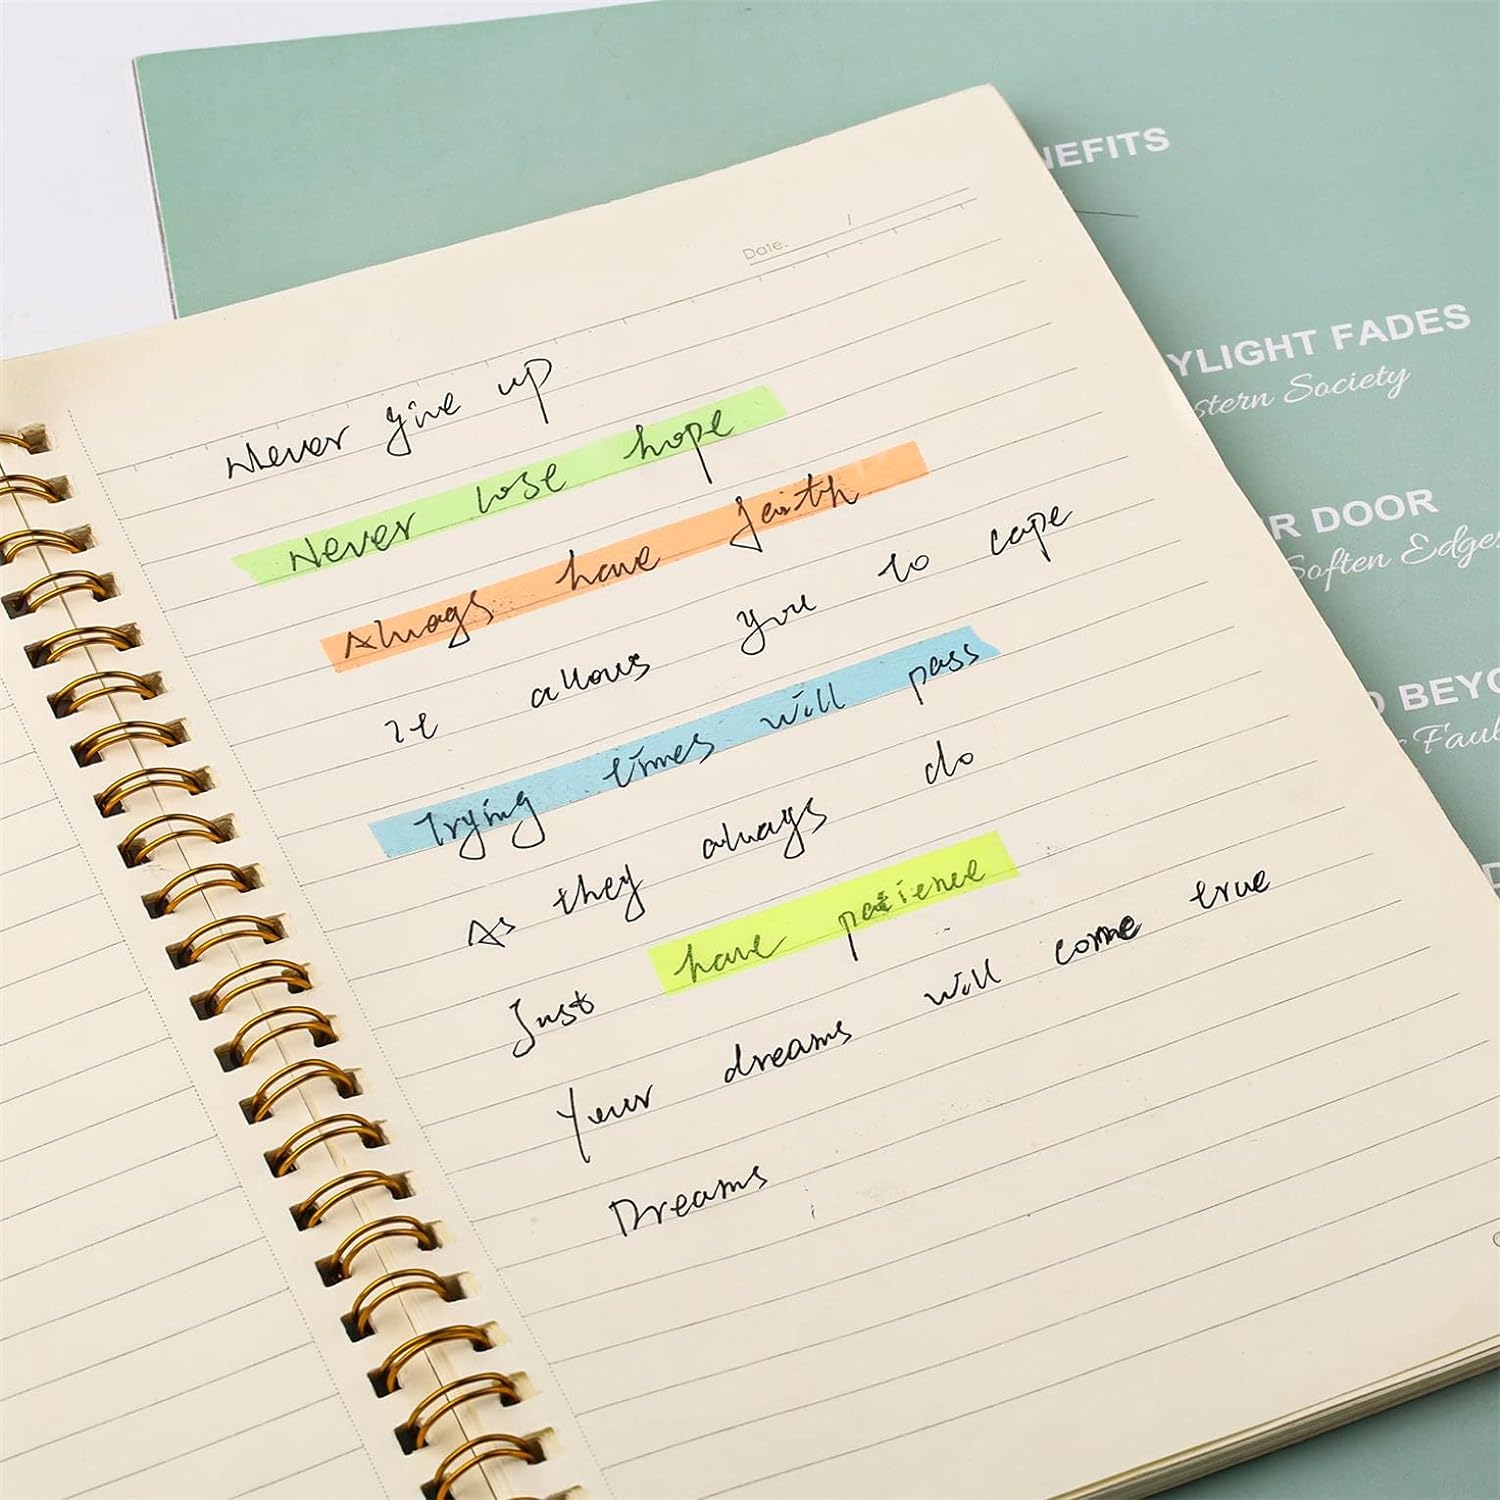 NEFITS
Date. /
YLIGHT FADES
stern Society
Never give up
Never lose hope
Always have faith
R DOOR
Soften Edges
It allows you to cope
Trying times will pass
O BEYO
Faul
As they always do
Just have patience
Your dreams will come true
Dreams